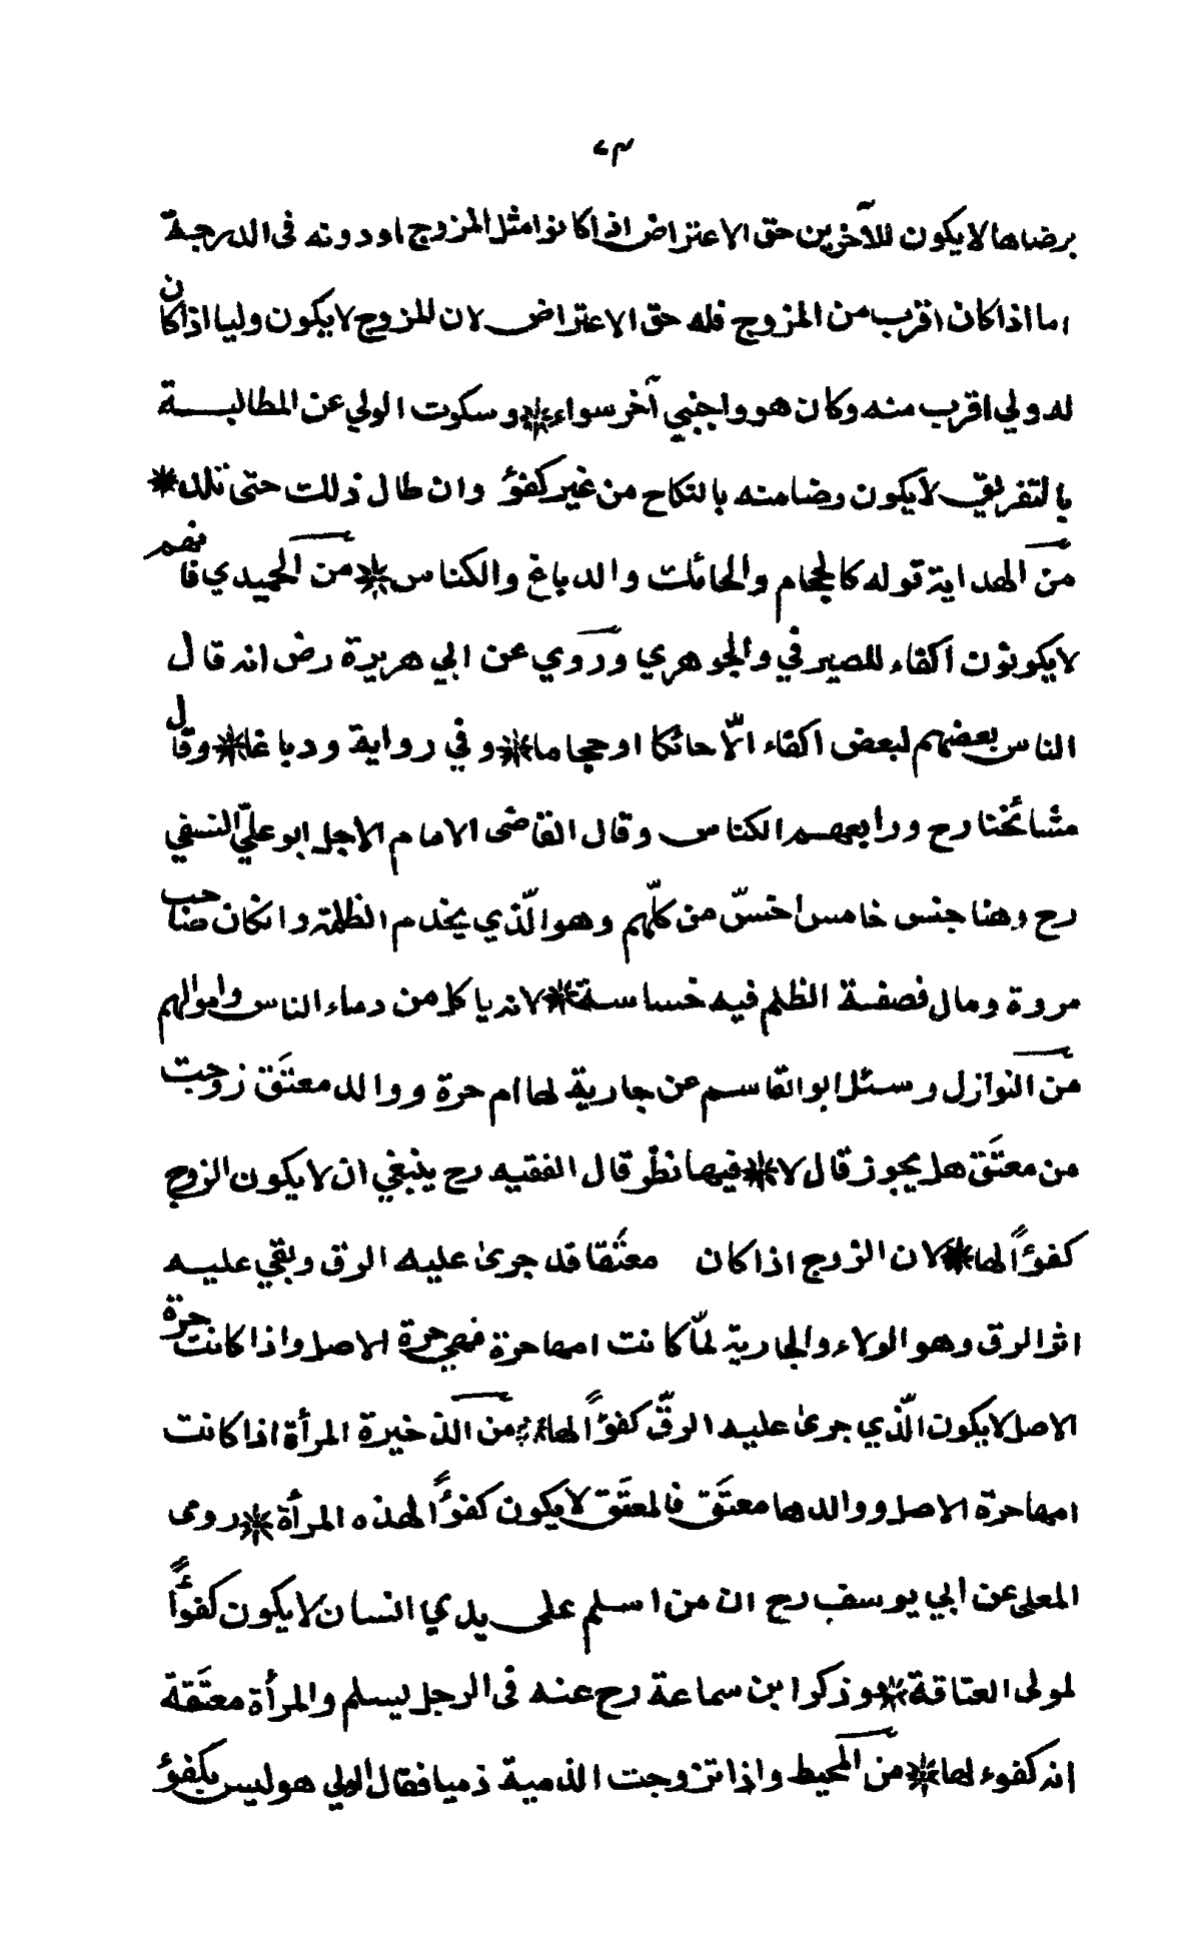 برضاها لا يكون للآخرين حق الاعتراض اذا كانوا مثل المزوج او دونه فى الدرجة
اما اذا كان اقرب من المزوج فله حق الاعتراض لان للمزوج لا يكون وليا اذا كان
له ولي اقرب منه وكان هو واجنبي آخر سواء * وسكوت الولي عن المطالبــة
بالتفريق لا يكون رضا منه بالنكاح من غير كفؤ وان طال ذلك حتى تلد *
من الهداية قوله كالحجام والحائك والدباغ والكناس * من الحميدي فانهم
لا يكونون اكفاء للصيرفي والجوهري وروي عن ابي هريرة رض انه قال
الناس بعضهم لبعض اكفاء الّا حائكا او حجاما * وفي رواية ودباغا * وقال
مشائخنا رح ورابعهم الكناس وقال القاضى الامام الاجل ابو عليّ النسفي
رح وهنا جنس خامس اخسّ من كلّهم وهو الّذي يخدم الظلمة وانكان صاحب
مروة ومال فصفة الظلم فيه خساسة * لانه ياكل من دماء الناس واموالهم
من النوازل وسئل ابو القاسم عن جارية لها ام حرة ووالد معتَق زوجت
من معتَق هل يجوز قال لا * فيها نظر قال الفقيه رح ينبغي ان لا يكون الزوج
كفوًا لها * لان الزوج اذا كان معتَقا قد جرى عليه الرق وبقي عليــه
اثر الرق وهو الولاء والجارية لمّا كانت امها حرة فهي حرة الاصل واذا كانت حرة
الاصل لا يكون الّذي جرى عليه الرقّ كفؤًا لها * من الذخيرة المرأة اذا كانت
امها حرة الاصل ووالدها معتَق فالمعتَق لا يكون كفؤًا لهذه المرأة * روى
المعلى عن ابي يوسف رح ان من اسلم على يدي انسان لا يكون كفؤًا
لمولى العتاقة * وذكر ابن سماعة رح عنه فى الرجل يسلم والمرأة معتَقة
انه كفوء لها * من المحيط واذا تزوجت الذمية ذميا فقال الولي هو ليس بكفؤ